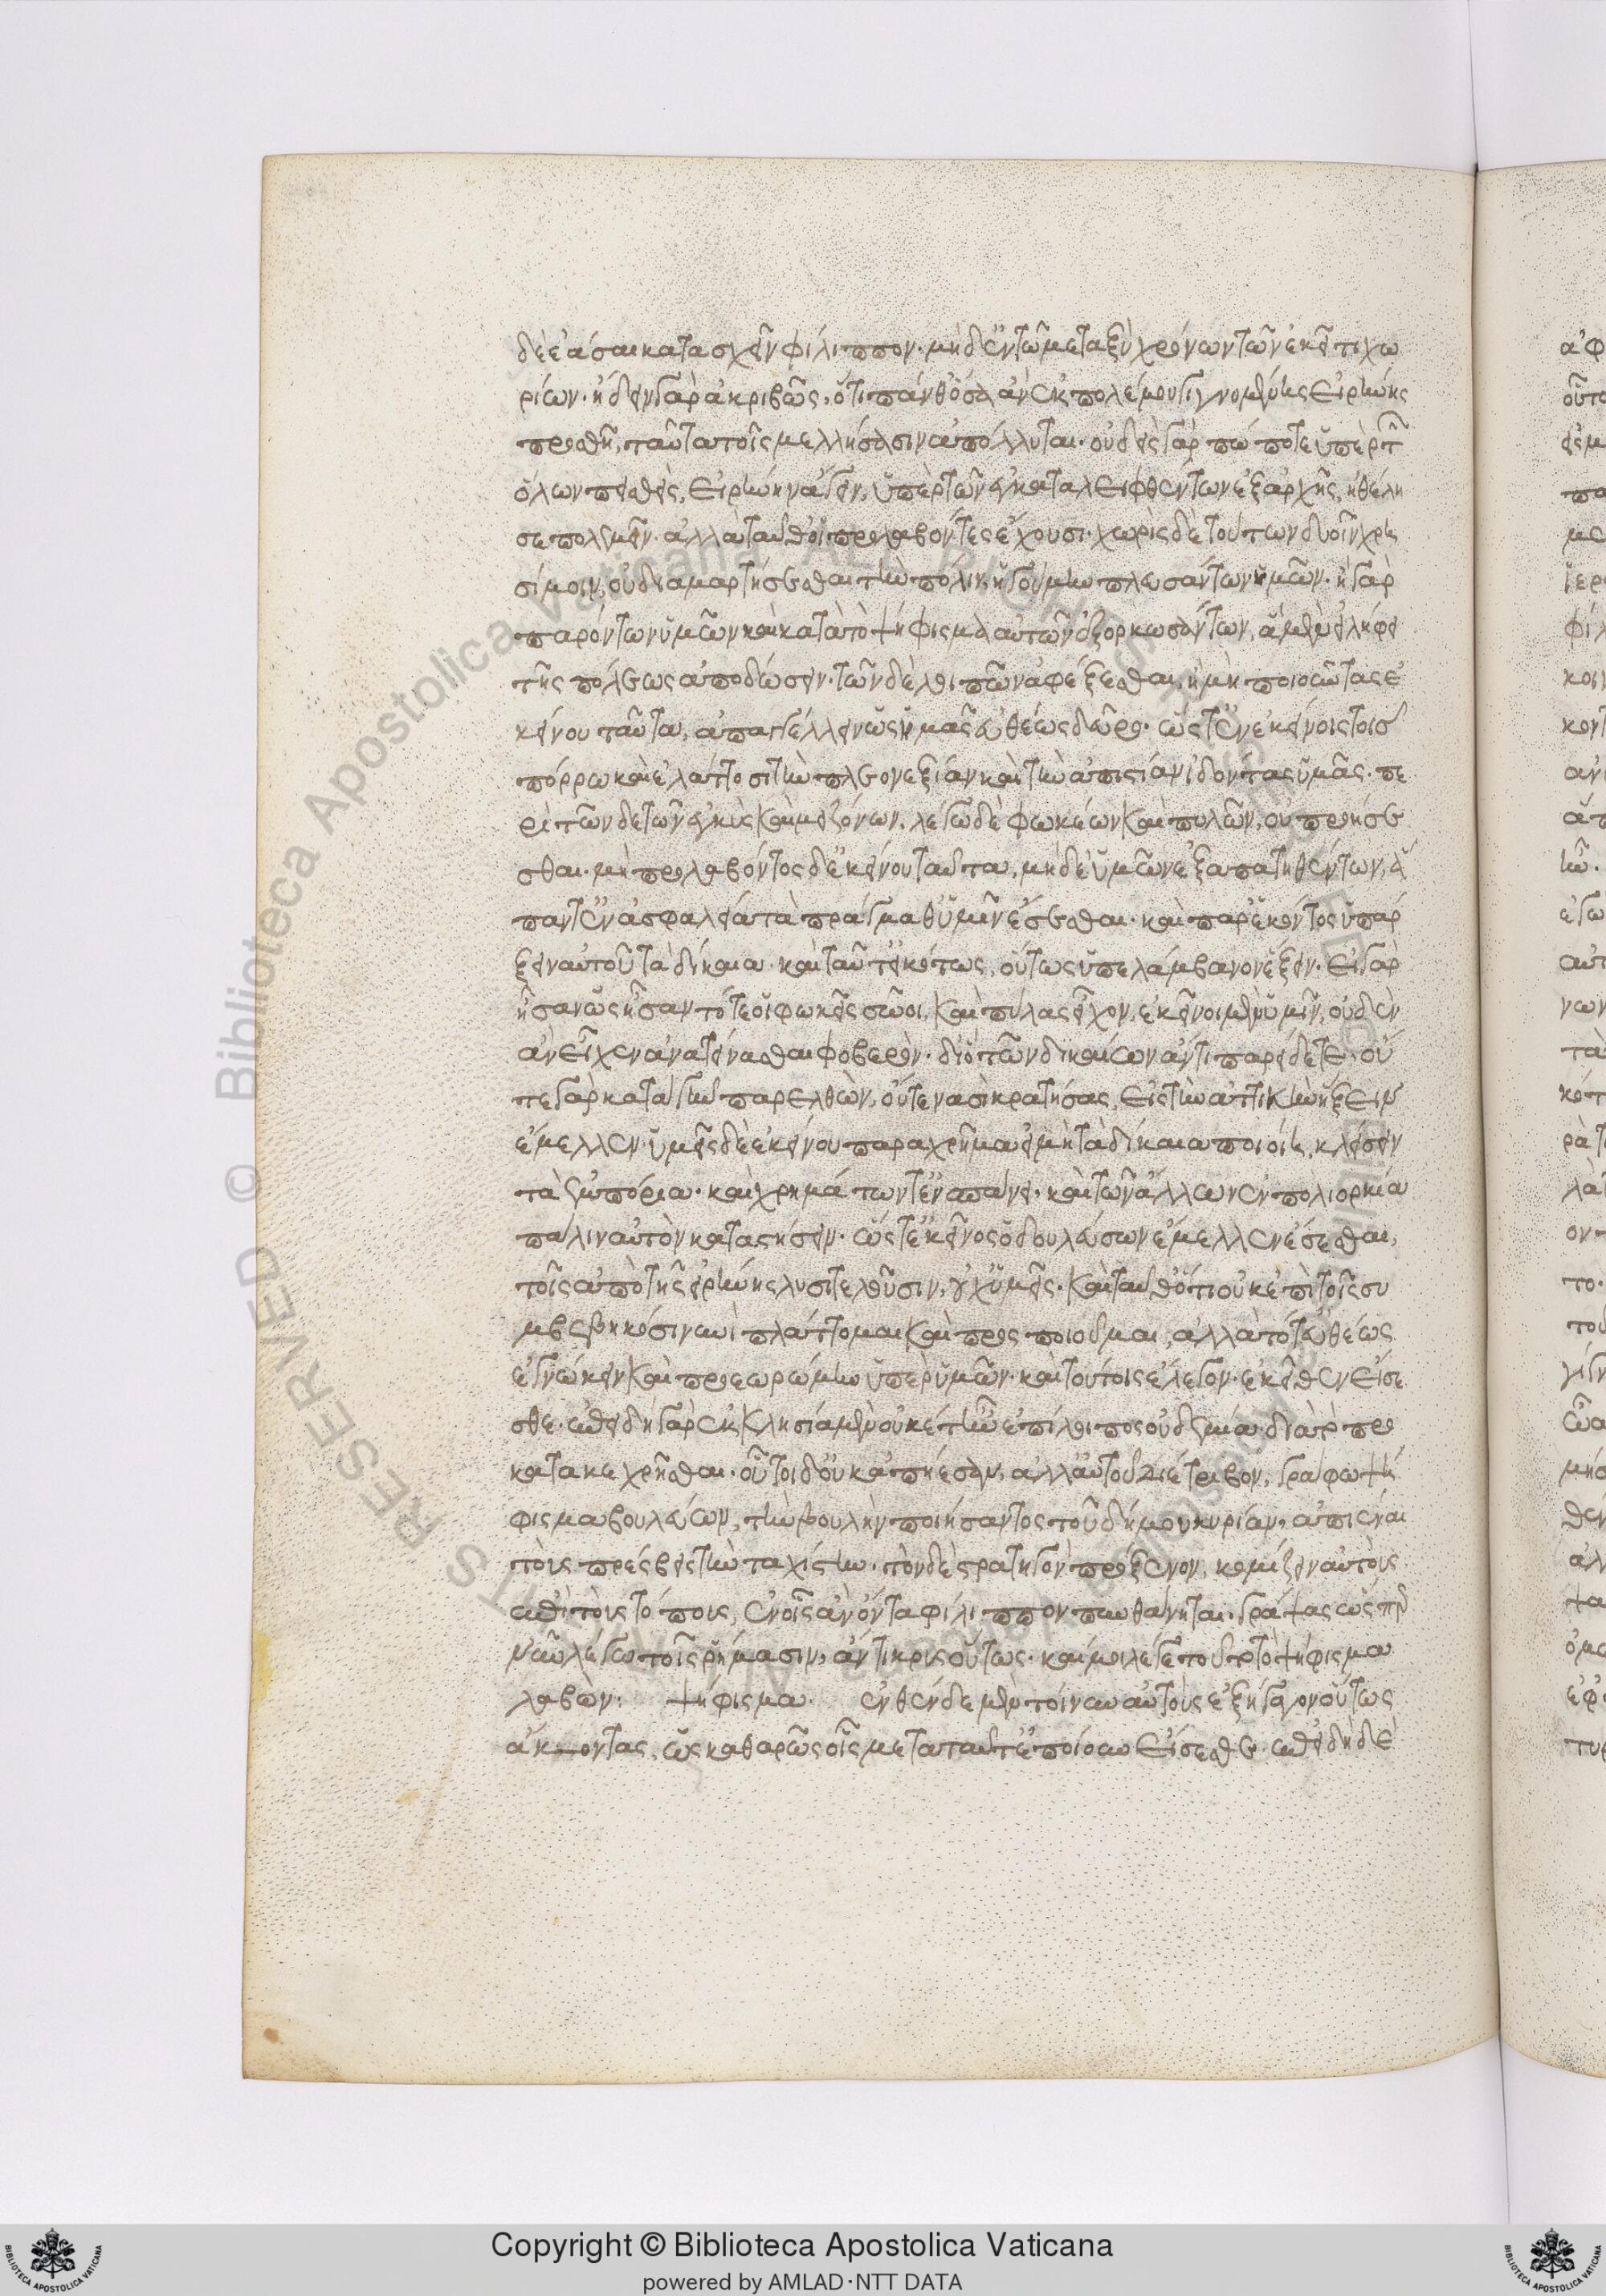 δὲ ἐᾶσαι κατασχεῖν φίλιππον· μηδ' ἐν τῶ μεταξὺ χρόνων τῶν ἐκεῖ τι χω
ρίων· ἤδειν γὰρ ἀκριβῶς, ὅτι πάνθ' ὅσα ἂν ἐκ πολέμου γιγνομένης εἰρήνης
προεθῆ, ταῦτα τοῖς μελλήσασιν ἀπόλλυται· οὐδεὶς γὰρ πώποτε ὑπὲρ τῶν
ὅλων πεισθεὶς, εἰρήνην ἄγειν, ὑπὲρ τῶν ἐγκαταλειφθέντων ἐξαρχῆς, ἠθέλη
σε πολεμεῖν· ἀλλὰ ταῦθ' οἱ προλαβόντες ἔχουσι· χωρὶς δὲ τούτων δυοῖν χρη
σίμοιν, οὐ διαμαρτήσεσθαι τὴν πόλιν, ἡγούμην πλευσάντων ἡμῶν· ἢ γὰρ
παρόντων ὑμῶν καὶ κατὰ τὸ ψήφισμα αὐτῶν ἐξορκωσάντων, ἃ μὲν εἰλήφει
τῆς πόλεως ἀποδώσειν· τῶν δὲ λοιπῶν ἀφέξεσθαι, ἢ μὴ ποιοῦντας ἐ
κείνου ταῦτα, ἀπαγγέλλειν ὡς ὑμᾶς εὐθέως δεῦρο· ὥστ' ἐν ἐκείνοις τοῖς
πόρρω καὶ ἐλάττοσι τὴν πλεονεξίαν καὶ τὴν ἀπιστίαν ἰδόντας ὑμᾶς· πε
ρὶ τῶν δὲ τῶν ἐγγὺς καὶ μειζόνων, λέγω δὲ φωκέων καὶ πυλῶν, οὐ προήσε
σθαι· μὴ προλαβόντος δ' ἐκείνου ταῦτα, μηδὲ ὑμῶν ἐξαπατηθέντων, ἅ
παντ' ἐν ἀσφαλεία τὰ πράγμαθ' ὑμῖν ἔσεσθαι· καὶ παρ' ἑκόντος ὑπάρ
ξειν αὐτοῦ τὰ δίκαια· καὶ ταῦτ' εἰκότως, οὕτως ὑπελάμβανον ἕξειν· εἰ γὰρ
ἦσαν ὡς ἦσαν τότε οἱ φωκεῖς σῶοι, καὶ πύλας εἶχον, ἐκεῖνοι μὲν ὑμῖν, οὐδὲν
ἂν εἶχεν ἀνατείνασθαι φοβερὸν· δι' ὃ τῶν δικαίων ἀντιπαρείδετε, οὔ
τε γὰρ κατὰ γῆν παρελθὼν, οὔτε ναυσὶ κρατήσας, εἰς τὴν ἀττικὴν ἥξειν
ἔμελλεν· ὑμεῖς δὲ ἐκείνου παραχρῆμα εἰ μὴ τὰ δίκαια ποιοίη, κλείσειν
τὰ ἐμπόρια· καὶ χρημάτων τ' ἐν σπάνει· καὶ τῶν ἄλλων ἐν πολιορκία
πάλιν αὐτὸν καταστήσειν· ὥστ' ἐκεῖνος ὁ δουλεύσων ἔμελλεν ἔσεσθαι,
τοῖς ἀπὸ τῆς εἰρήνης λυσιτελοῦσιν, οὐχ' ὑμεῖς· καὶ ταῦθ' ὅτι οὐκ ἐπὶ τοῖς συ
μβεβηκόσιν νυνὶ πλάττομαι καὶ προσποιοῦμαι, ἀλλὰ τότ' εὐθέως
ἐγνώκειν καὶ προεωρώμην ὑπὲρ ὑμῶν· καὶ τούτοις ἔλεγον· ἐκεῖθεν εἴσε
σθε· ἐπειδὴ γὰρ ἐκκλησία μὲν οὐκέτ' ἦν ἐπίλοιπος οὐδεμία· διὰ τὸ προ
κατακεχρῆσθαι· οὗτοι δ' οὐκ ἀπήεσαν, ἀλλ' αὐτοῦ διέτριβον, γράφω ψή
φισμα βουλεύων, τὴν βουλὴν ποιήσαντος τοῦ δήμου κυρίαν, ἀπιέναι
τοὺς πρέσβεις τὴν ταχίστην· τὸν δὲ στρατηγὸν πρόξενον, κομίζειν αὐτοὺς
ἐπὶ τοὺς τόπους, ἐν οἷς ἂν ὄντα φίλιππον πυνθάνηται· γράψας ὥσπερ
νῦν λέγω τοῖς ῥήμασιν, ἀντικρὺς οὕτως· καί μοι λέγε τουτὶ τὸ ψήφισμα
λαβών· ψήφισμα· ἐνθένδε μὲν τοίνυν αὐτοὺς ἐξήγαγον οὕτως
ἄκοντας, ὡς καθαρῶς οἷς μετὰ ταῦτ' ἐποίουν εἴσεσθε· ἐπειδὴ δὲ